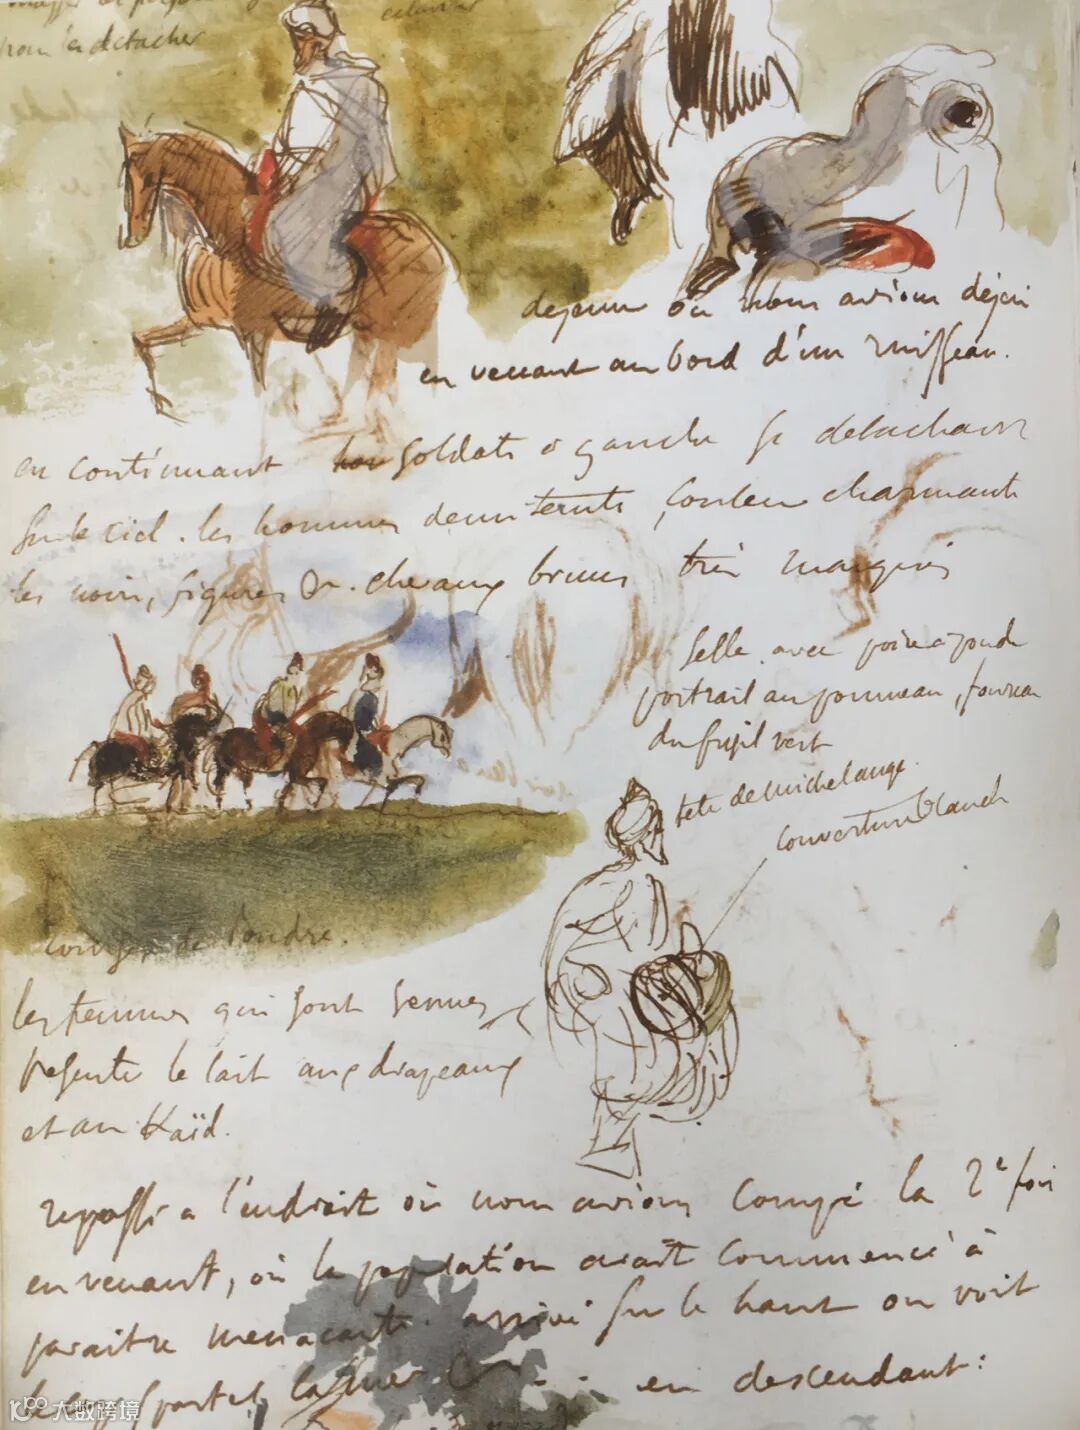 pour les détacher
dejeuné où nous avions déjeu
en venant au bord d'un ruisseau.
en continuant soldats à gauche se detachant
sur le ciel. les hommes demi teinte, couleur charmante
les noirs, figures &. chevaux bruns très marqués
Selle avec poire a poudre
portrait au pommeau, foureau
du fusil vert
tete de Michelange.
couverture blanche
courses de poudre.
les femmes qui sont venues
presenter le lait aux drapeaux
et au Kaïd.
repassé a l'endroit où nous avions campé la 2e fois
en venant, où la population avait commencé à
paraitre menacante. arrivé sur le haut on voit
le cap Spartel, la mer en descendant:
大数跨境